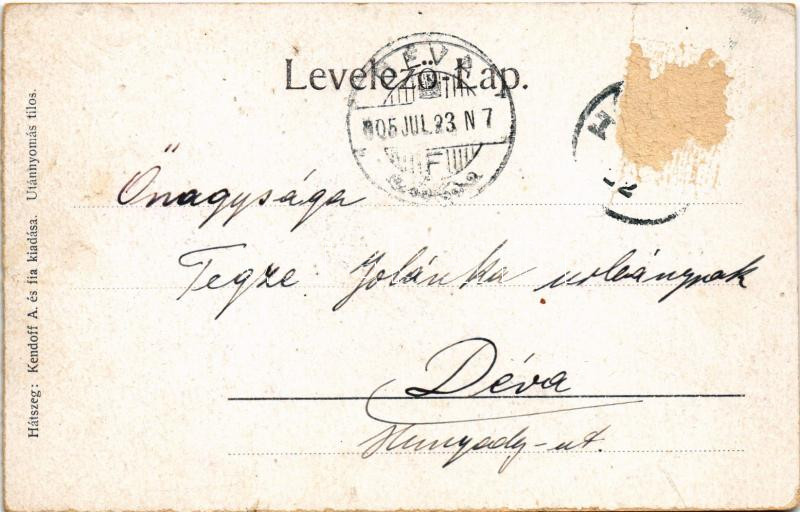 Levelező-Lap.
DÉVA
905 JUL. 23 N 7
F
H
Őnagysága
Tegze Jolánka urleánynak
Déva
Hunyady-ut.
Hátszeg: Kendoff A. és fia kiadása. Utánnyomás tilos.